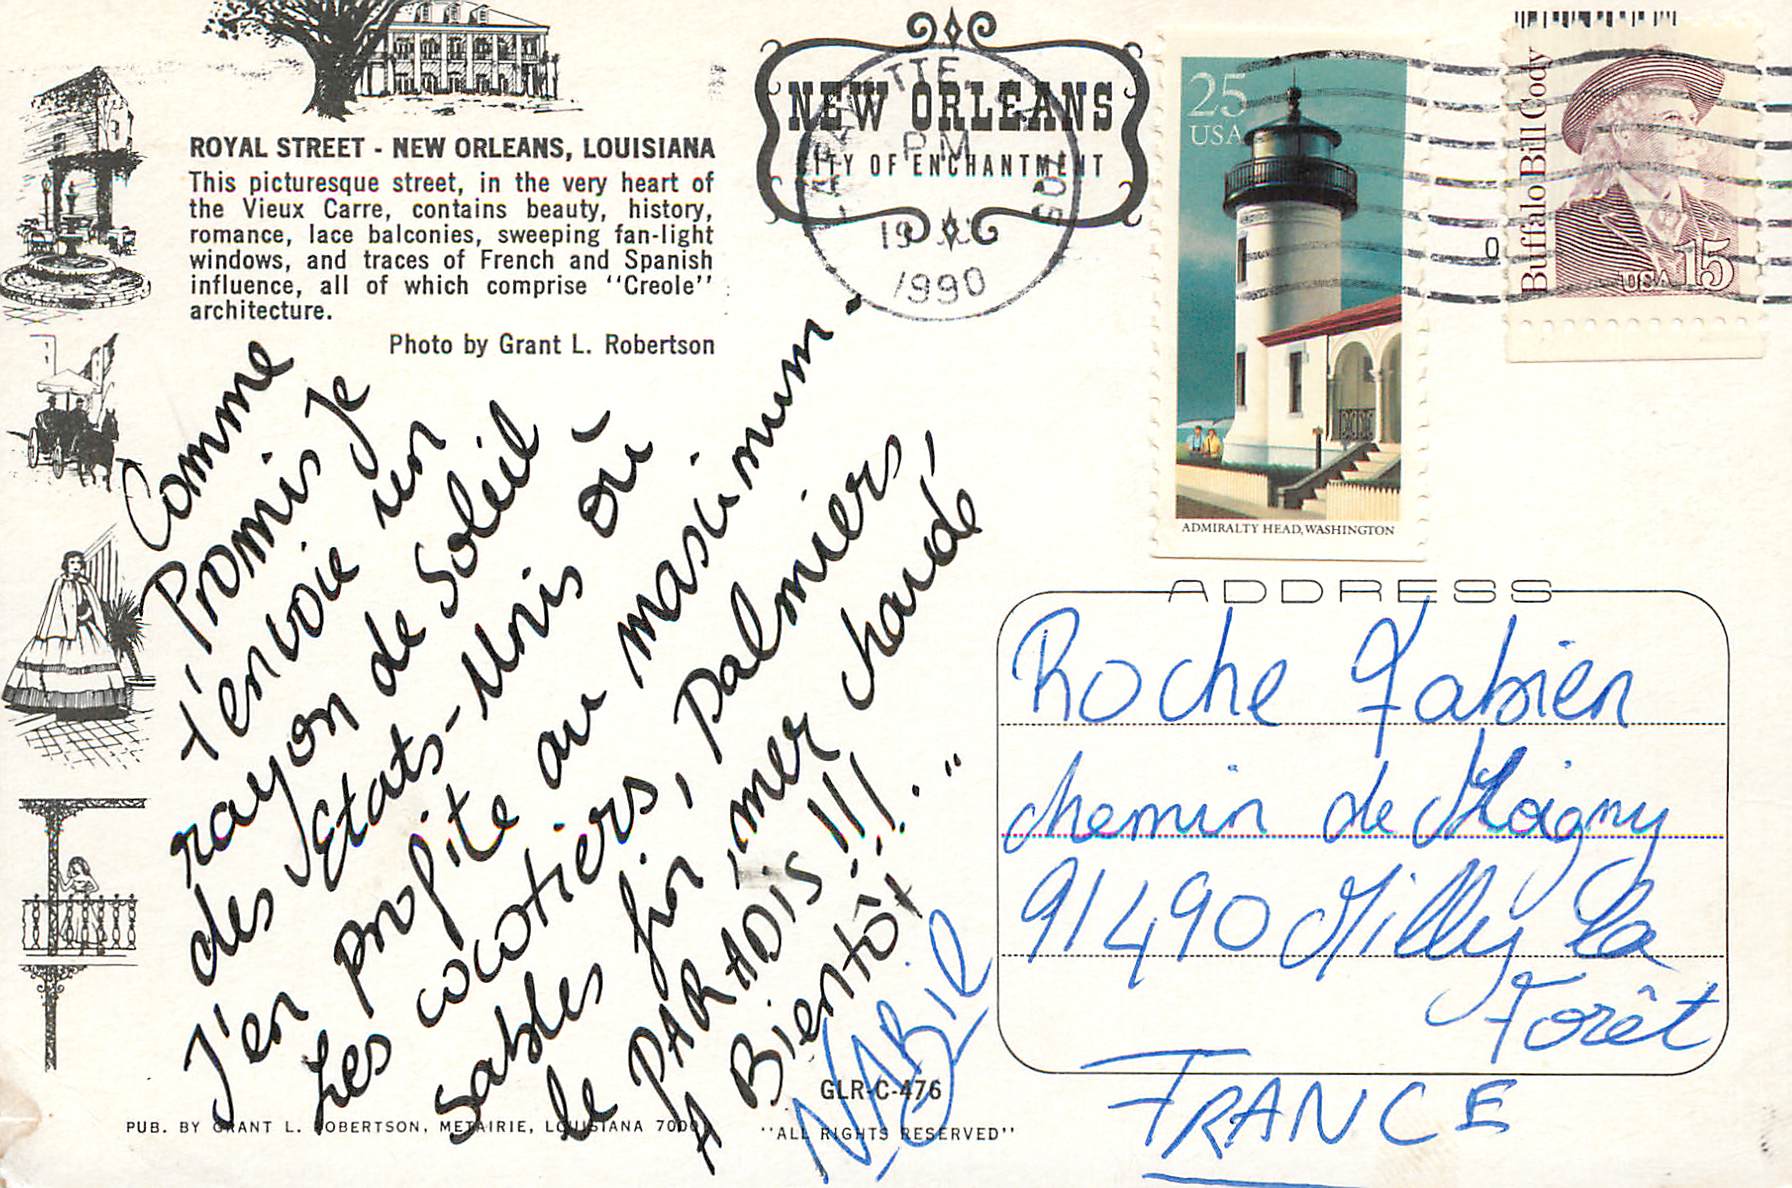 ROYAL STREET - NEW ORLEANS, LOUISIANA
This picturesque street, in the very heart of
the Vieux Carre, contains beauty, history,
romance, lace balconies, sweeping fan-light
windows, and traces of French and Spanish
influence, all of which comprise "Creole"
architecture.
Photo by Grant L. Robertson
NEW ORLEANS
CITY OF ENCHANTMENT
PM
19
1990
25
USA
ADMIRALTY HEAD, WASHINGTON
Buffalo Bill Cody
USA 15
Comme
Promis je
t'envoie un
rayon de Soleil
des Etats-Unis où
J'en profite au maximum.
Les cocotiers, Palmiers,
sables fin, mer chaude
le PARADIS !!!
A Bientôt...
NABIL
ADDRESS
Roche Fabien
chemin de Moigny
91490 Milly la
Forêt
FRANCE
GLR-C-476
PUB. BY GRANT L. ROBERTSON, METAIRIE, LOUISIANA
"ALL RIGHTS RESERVED"